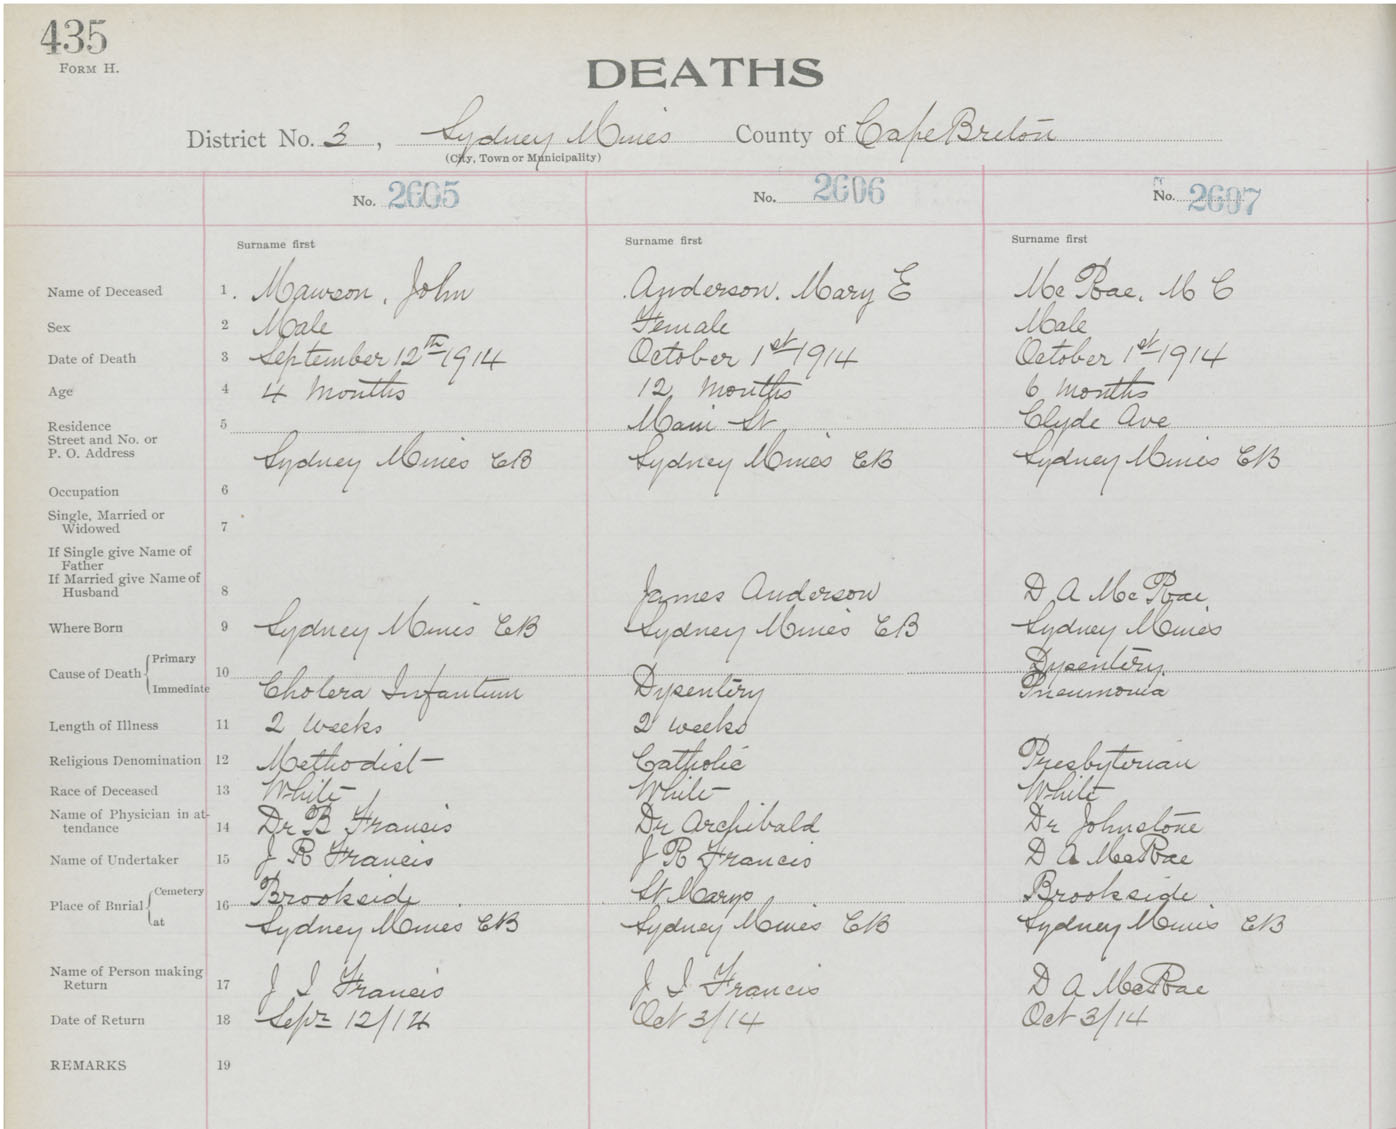 435
FORM H.
DEATHS
District No. 3, Sydney Mines County of Cape Breton
(City, Town or Municipality)
No. 2605 No. 2606 No. 2607
Surname first Surname first Surname first
Name of Deceased 1. Mawson, John Anderson. Mary E McRae, M C
Sex 2 Male Female Male
Date of Death 3 September 12th 1914 October 1st 1914 October 1st 1914
Age 4 4 months 12 months 6 months
Residence 5 Main St Clyde Ave
Street and No. or
P. O. Address Sydney Mines CB Sydney Mines CB Sydney Mines CB
Occupation 6
Single, Married or
Widowed 7
If Single give Name of
Father
If Married give Name of
Husband 8 James Anderson D A McRae
Where Born 9 Sydney Mines CB Sydney Mines CB Sydney Mines
Cause of Death Primary 10 Dysentery
Immediate Cholera Infantum Dysentery Pneumonia
Length of Illness 11 2 weeks 2 weeks
Religious Denomination 12 Methodist Catholic Presbyterian
Race of Deceased 13 White White White
Name of Physician in at-
tendance 14 Dr B Francis Dr Archibald Dr Johnstone
Name of Undertaker 15 J R Francis J R Francis D A McRae
Place of Burial Cemetery 16 Brookside St Marys Brookside
at Sydney Mines CB Sydney Mines CB Sydney Mines CB
Name of Person making
Return 17 J I Francis J I Francis D A McRae
Date of Return 18 Sept 12/14 Oct 3/14 Oct 3/14
REMARKS 19